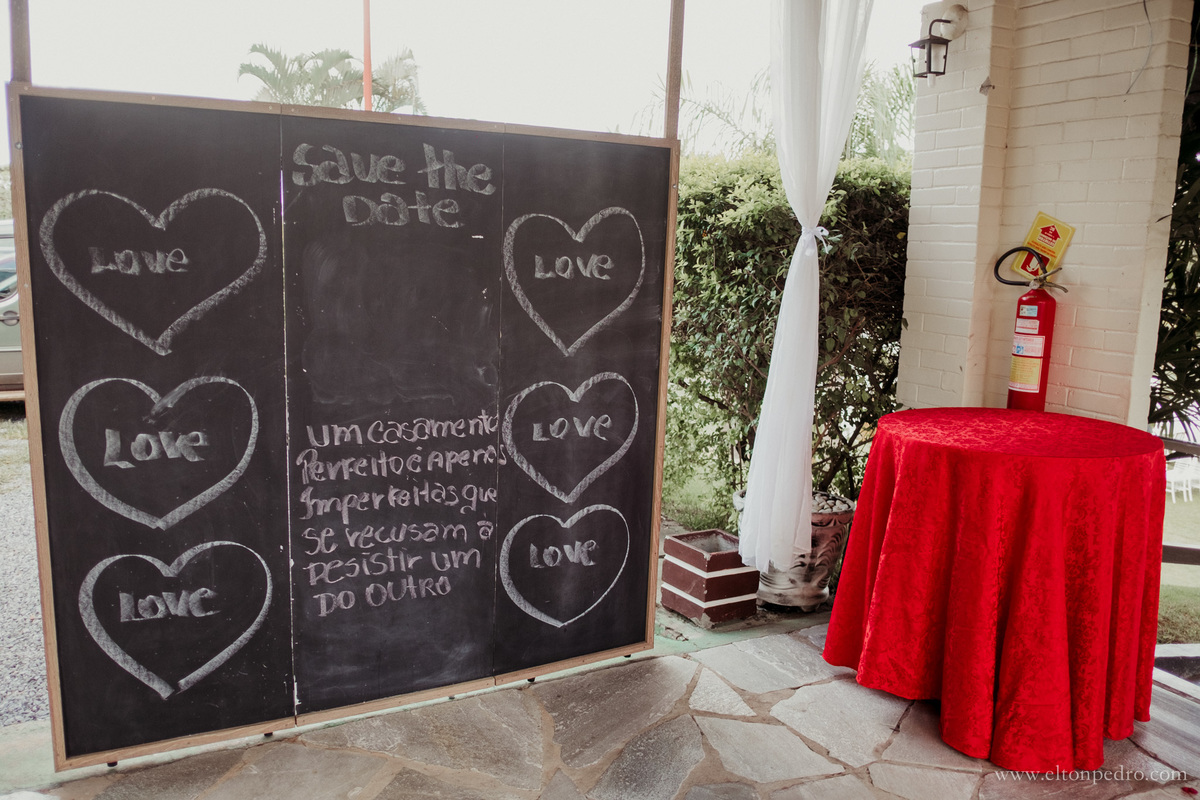 Save the
Date
Love
Love
Love
Love
Love
Love
Um casamento
Perfeito é Apenas
Imperfeitas que
se recusam a
Desistir um
Do outro
www.eltonpedro.com